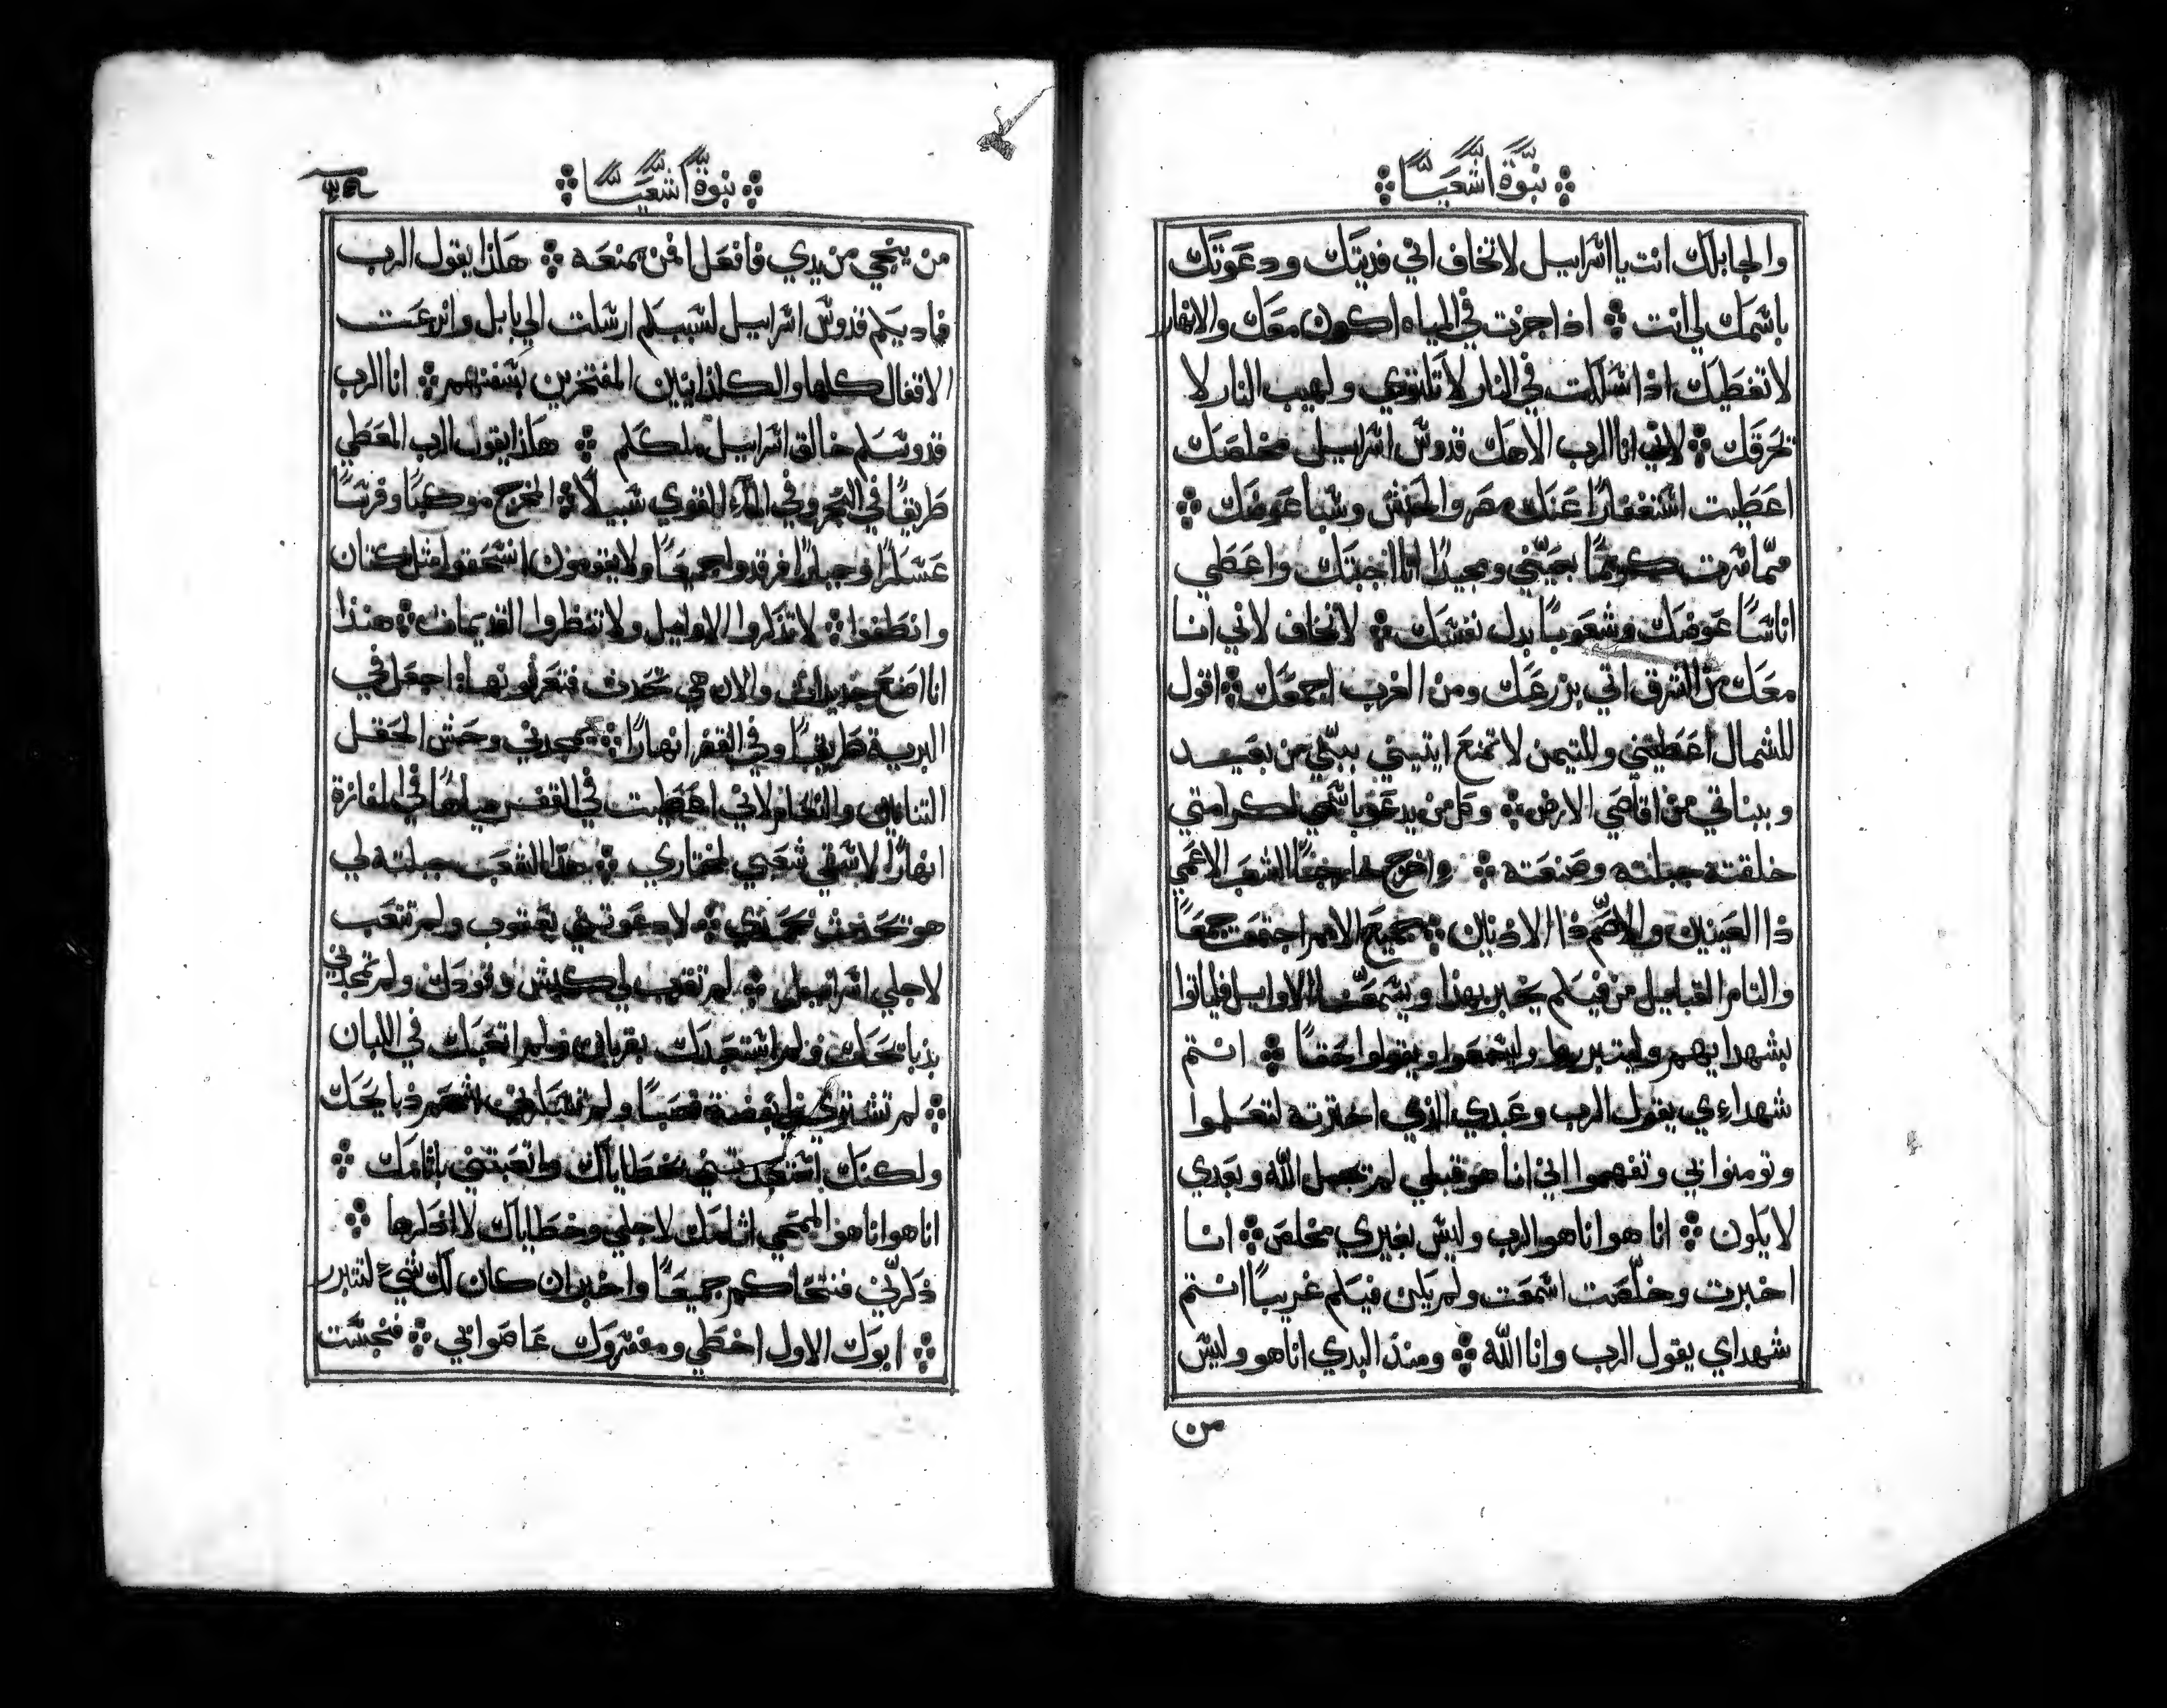 نبوة اشعيا
والجابلك انت يا اسراييل لا تخاف اني فديتك ودعوتك
باسمك لي انت ❖ اذا جزت في المياه اكون معك والانهار
لا تغطيك اذا سلكت في النار لا تلتوي ولهيب النار لا
تحرقك ❖ لاني انا الرب الاهك قدوس اسراييل مخلصك
اعطيت استغفارًا عنك مصر والحبش وسبا عوضك ❖
ممّا صرت كريمًا بعينّي ومجيدًا انا احببتك واعطي
اناسًا عوضك وشعوبًا بدل نفسك ❖ لا تخاف لاني انا
معك من الشرق اتي بزرعك ومن الغرب اجمعك ❖ اقول
للشمال اعطيني وللتيمن لا تمنع ايتيني ببنّي من بعيد
وببناتي من اقاصي الارض ❖ وكل من يدعو باسمي لكرامتي
خلقته جبلته وصنعته ❖ واخرج خارجًا الشعب الاعمى
ذا العينين والاصّم ذا الادنين ❖ جميع الامم اجتمعت جمعًا
والتام القبايل من فيكم يخبر بهذا ويسمعنا الاوايل فلياتوا
بشهدايهم وليتبرروا وليسمعوا ويقولوا حقًا ❖ انتم
شهداءي يقول الرب وعبدي الذي اخترته لتعلموا
وتومنوا بي وتفهموا اني انا هو قبلي لم تجبل الله وبعدي
لا يكون ❖ انا هو انا هو الرب وليس بغيري مخلص ❖ انا
اخبرت وخلّصت اسمعت ولم يكن فيكم غريبًا انتم
شهداي يقول الرب وانا الله ❖ ومنذ البدي انا هو وليس
من
نبوة اشعيا
من ينجي من يدي فافعل فمن يمنعه ❖ هكذا يقول الرب
فاديكم قدوس اسراييل لسببكم ارسلت الي بابل وانزعت
الاقفال كلها والكلدانيين المفتخرين بسفنهم ❖ انا الرب
قدوسكم خالق اسراييل ملككم ❖ هكذا يقول الرب المعطي
طريقًا في البحر وفي الماء القوي سبيلًا ❖ المخرج موكبًا وفرسًا
عسكرًا وجبارًا فرقدوا جميعًا ولا يقومون انسحقوا مثل كتان
وانطفوا ❖ لا تذكروا الاوايل ولا تنظروا القديمات ❖ هنذا
انا اضع جديدات والان هي تحدث فتعرفونها اجعل في
البرية طريقًا وفي القفر انهارًا ❖ يمجدني وحش الحقل
التنانين والنعام لاني اعطيت في القفر مياهًا في المفازة
انهارًا لاسقي شعبي مختاري ❖ هذا الشعب جبلته لي
هو تحدث بمجدي ❖ لا دعوتني يعقوب ولم تتعب
لاجلي اسراييل ❖ لم تقرب لي كبش وقودك ولم تمجدني
بذبايحك ولم استعبدك بقربان ولم اتعبك في اللبان
❖ لم تشتري لي بفضة قصبًا ولم شحم ذبايحك
ولكنك استعبدتني بخطاياك واتعبتني باثامك ❖
انا هو انا هو الممحي اثامك لاجلي وخطاياك لا اذكرها ❖
ذكرّني فنتحاكم جميعًا واخبر ان كان لك شيء لتتبرر
❖ ابوك الاول اخطي ومفسروك عاصوا بي ❖ فنجست